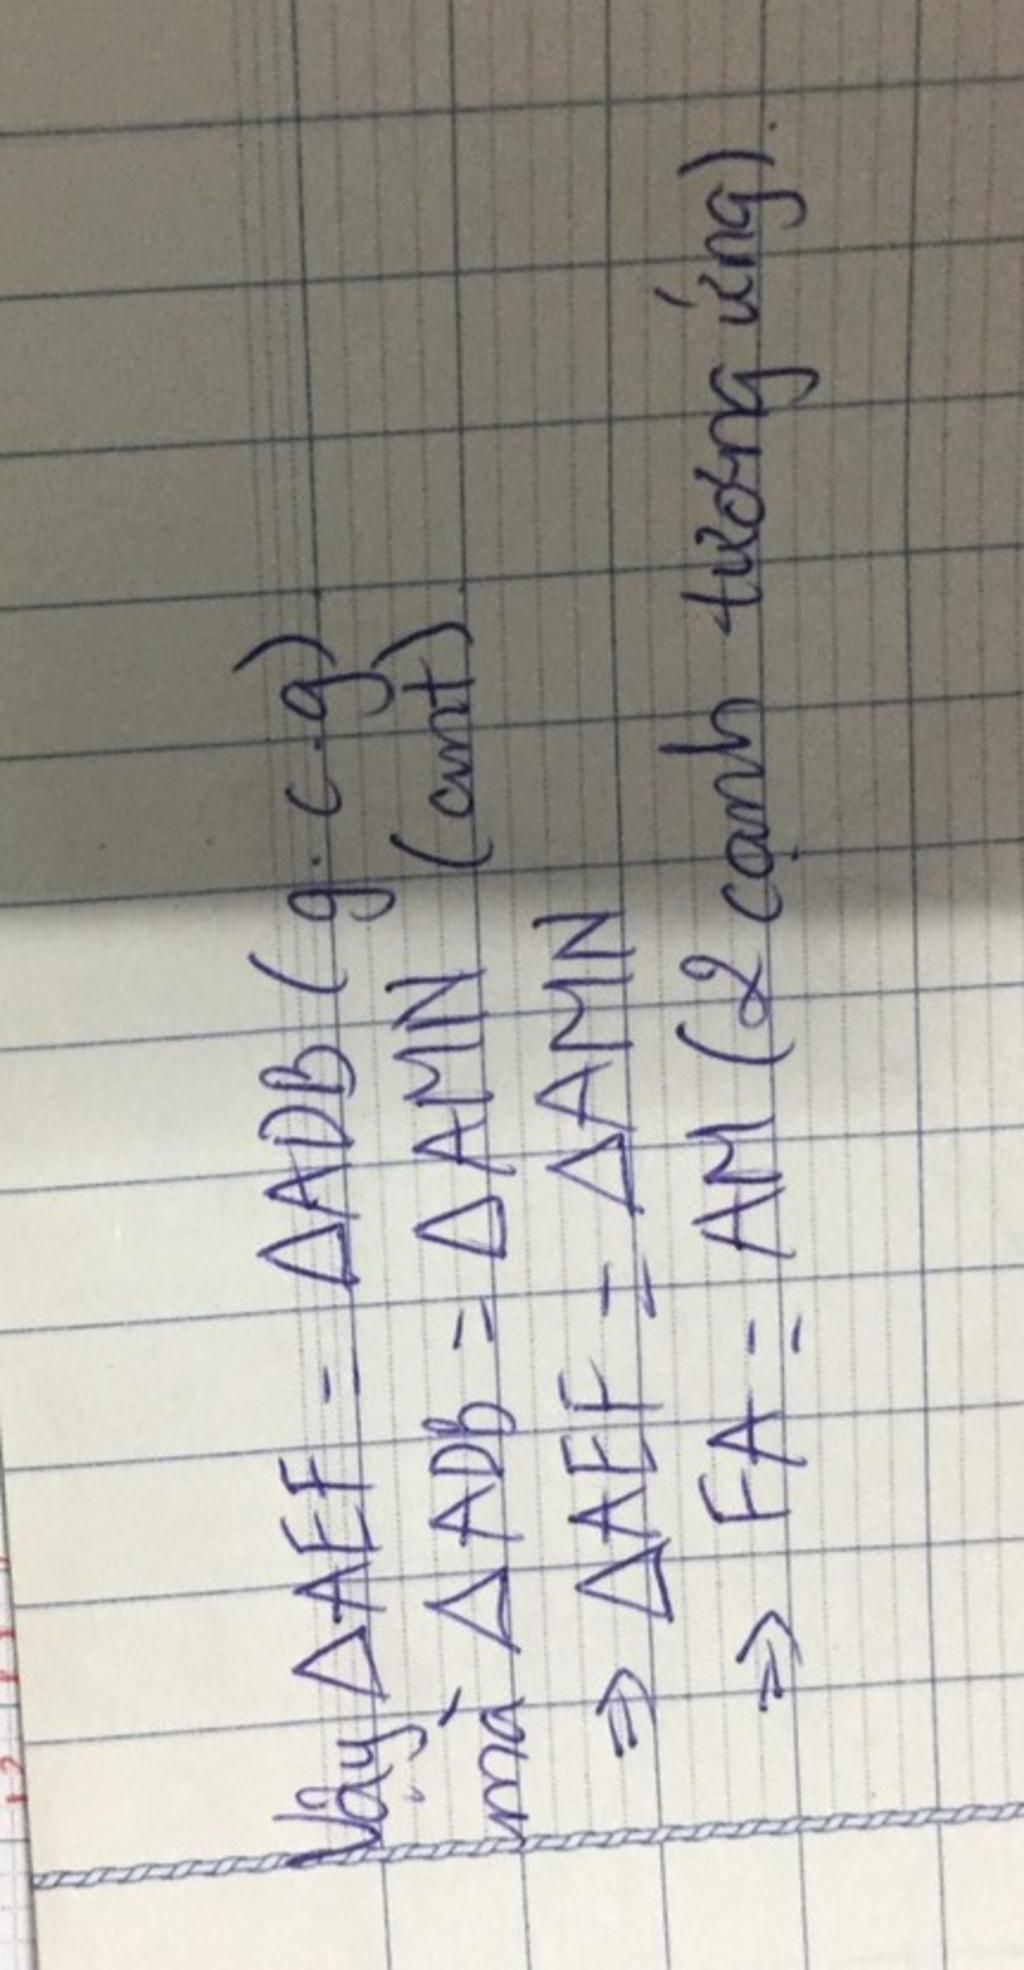 Vậy ΔAEF = ΔADB (g.c.g)
mà ΔADB = ΔAMN (cmt)
⇒ ΔAEF = ΔAMN
⇒ FA = AM (2 cạnh tương ứng).